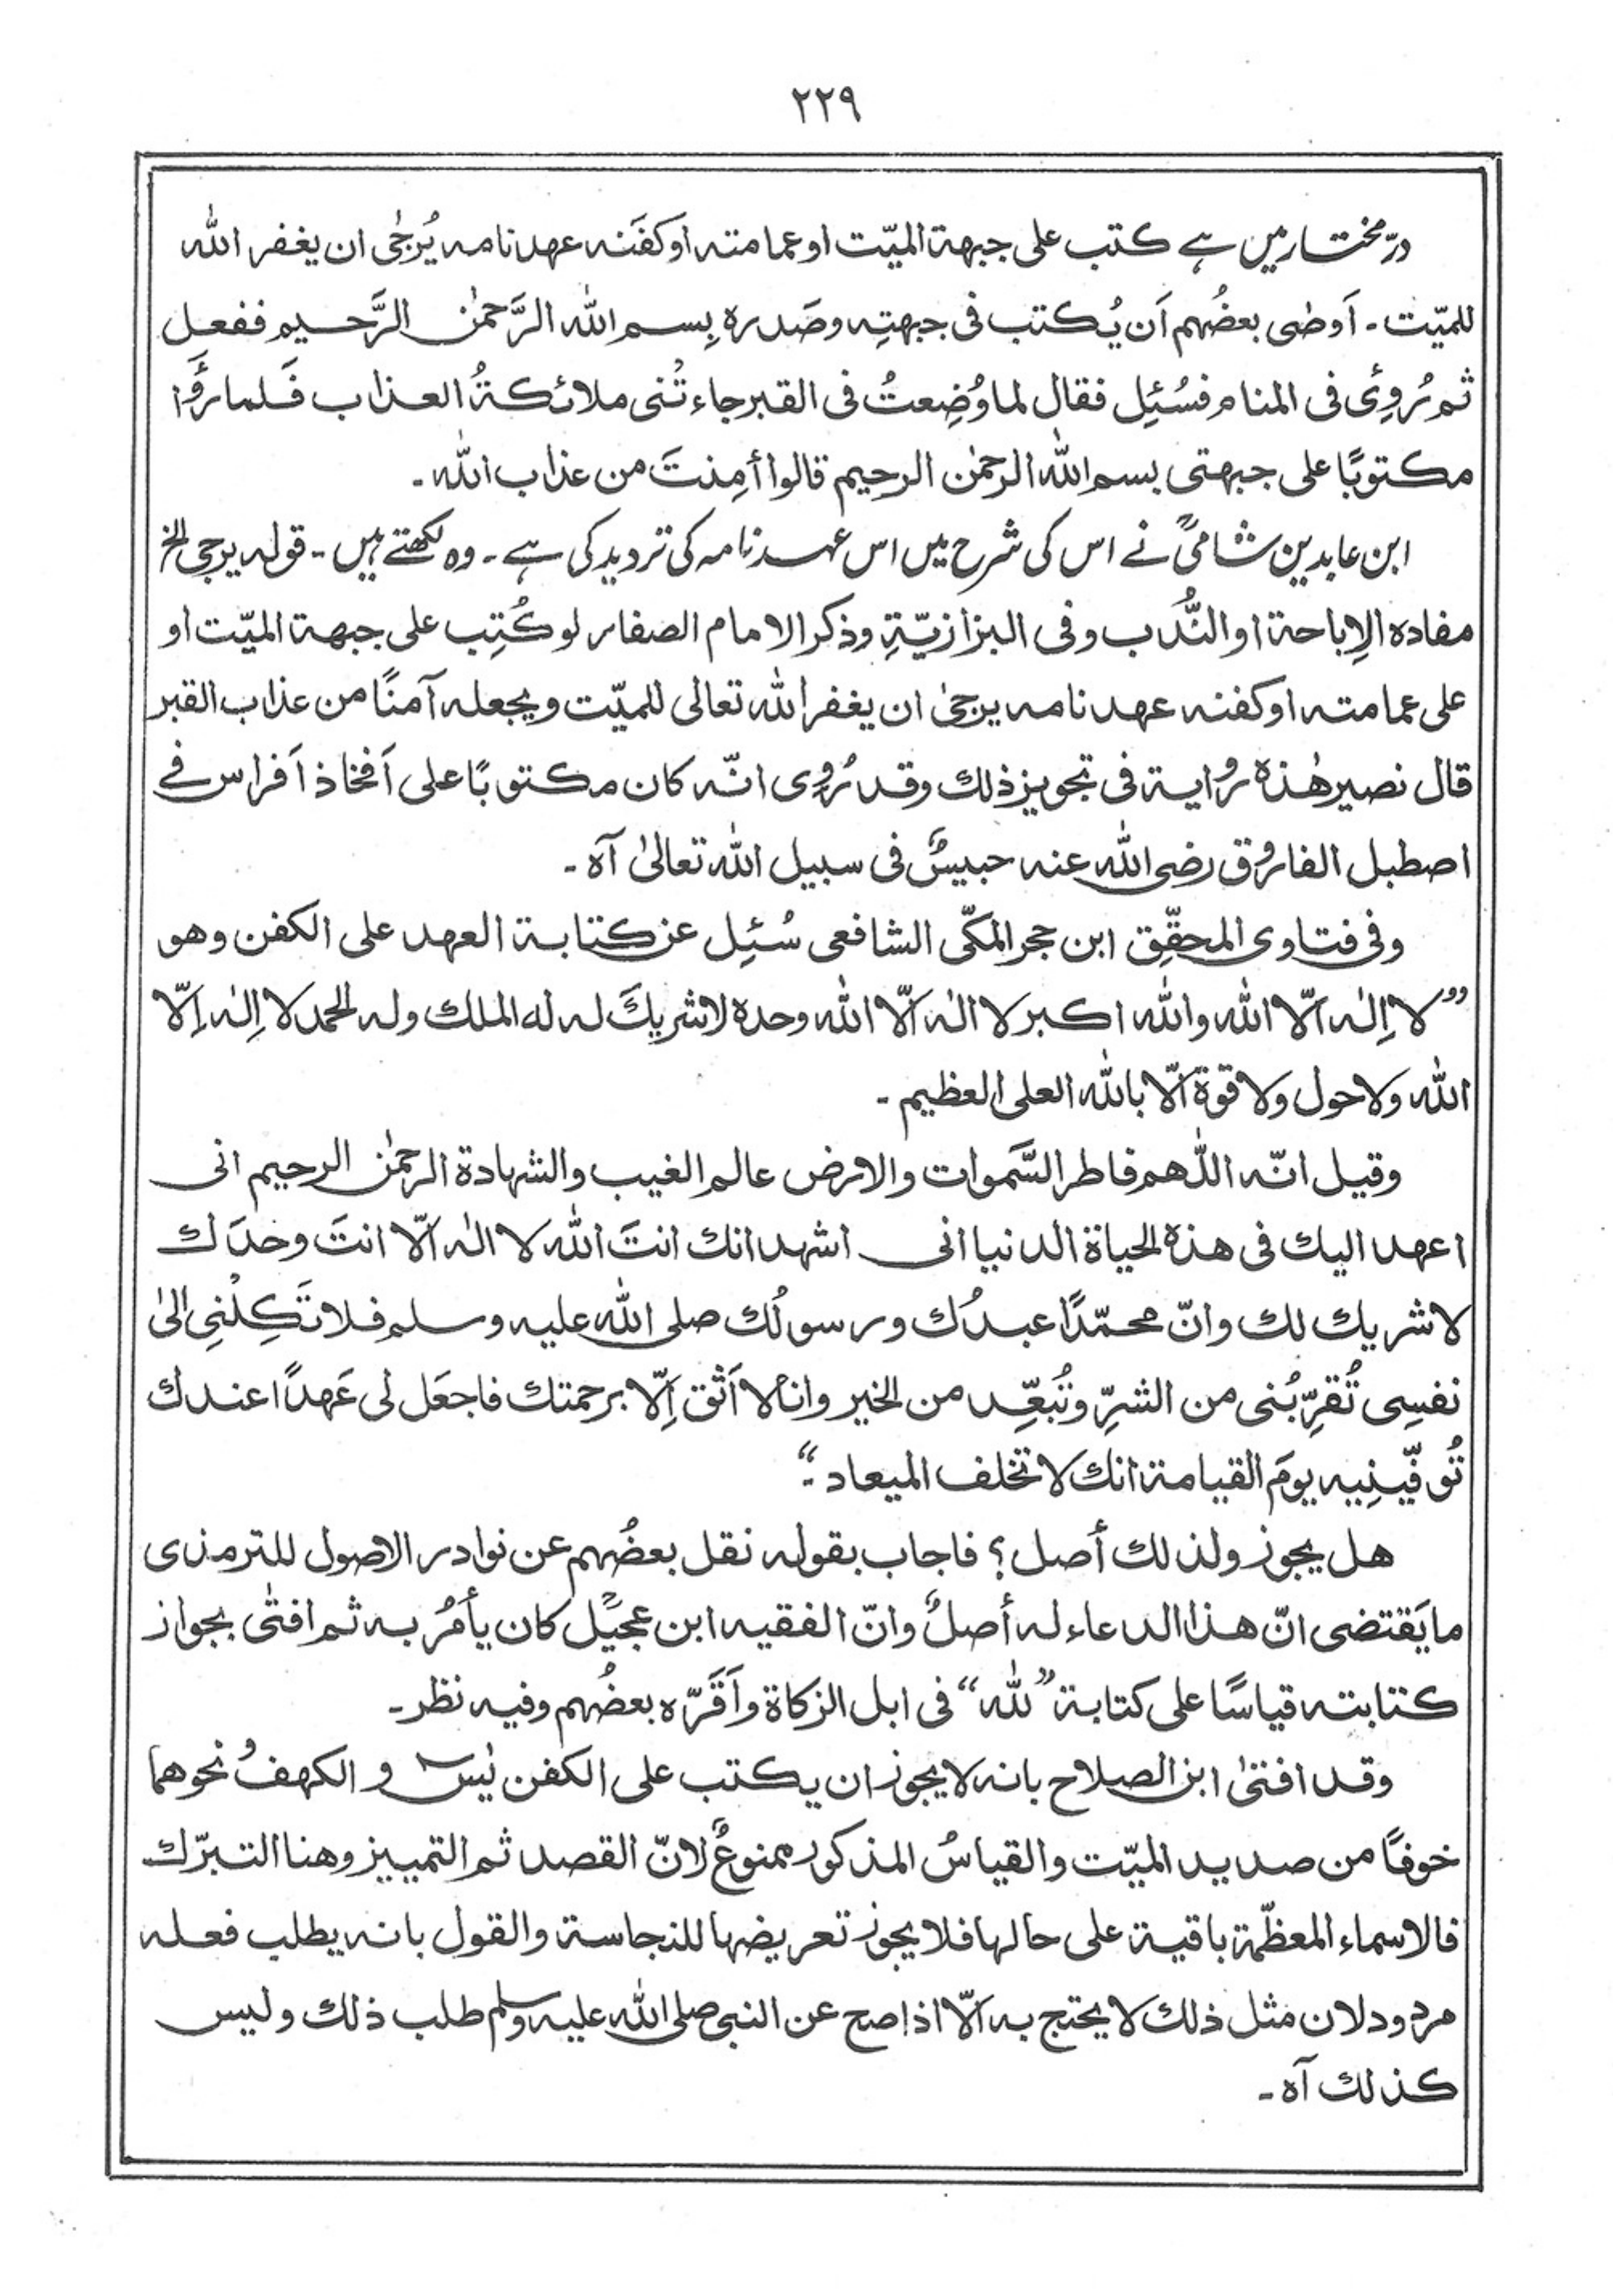 ٢٢٩
درّ مختار میں ہے کتب علی جبهة المیّت او عمامته او کفَنه عهد نامه یُرجٰی ان یغفر الله
للمیّت ۔ اَوصٰی بعضُهم اَن یُکتب فی جبهتِه وصَدره بِسم الله الرَّحمٰن الرَّحیم ففعل
ثم رُوِئَی فی المنام فسُئِل فقال لما وُضِعتُ فی القبر جاء تْنی ملائکةُ العذاب فَلما رَؤُا
مکتوبًا علی جبهتی بسم الله الرحمٰن الرحیم قالوا أمِنتَ من عذاب الله ۔
ابن عابدین شامیؒ نے اس کی شرح میں اس عہد نامہ کی تردید کی ہے ۔ وہ لکھتے ہیں ۔ قوله یرجی الخ
مفاده الاِباحة او النَّدُب وفی البزازیّةِ وذکر الامام الصفار لو کُتِب علی جبهة المیّت او
علی عمامته او کفنه عهد نامه یرجیٰ ان یغفر الله تعالی للمیّت ویجعله آمنًا من عذاب القبر
قال نصیر هٰذه روایة فی تجویز ذلك وقد رُوِی انّه کان مکتوبًا علی اَفخاذ اَفراس فے
اصطبل الفاروق رضی الله عنه حبیسٌ فی سبیل الله تعالیٰ آه ۔
وفی فتاوی المحقّق ابن حجر المکّی الشافعی سُئِل عن کتابة العهد علی الکفن وهو
”لا اِلٰه الّا الله والله اکبر لا الٰه الّا الله وحده لا شریكَ له له الملك وله الحمد لا اِلٰه اِلّا
الله ولا حول ولا قوة الّا بالله العلی العظیم ۔
وقیل انّه اللّٰهم فاطر السَّموات والارض عالم الغیب والشهادة الرحمٰن الرحیم انی
اعهد الیك فی هذه الحیاة الدنیا انی اشهد انك انتَ الله لا الٰه الّا انتَ وحدَك
لا شریك لك وانّ محمّدًا عبدُك ورسولُك صلی الله علیه وسلم فلا تَکِلْنِی الیٰ
نفسِی تُقرِّبُنی من الشرِّ وتُبعِّد من الخیر وانا لا اَثق اِلّا برحمتك فاجعَل لی عَهدًا عندك
تُوفّینِیه یومَ القیامة انك لا تخلف المیعاد“۔
هل یجوز ولذلك أصل؟ فاجاب بقوله نقل بعضُهم عن نوادر الاصول للترمذی
ما یَقتضی انّ هذا الدعاء له أصلٌ وانّ الفقیه ابن عجیل کان یأمُر به ثم افتٰی بجواز
کتابته قیاسًا علی کتابة ”لله“ فی ابل الزکاة واَقَرّه بعضُهم وفیه نظر ۔
وقد افتیٰ ابن الصلاح بانه لا یجوز ان یکتب علی الکفن یٰس و الکهفُ ونحوهما
خوفًا من صدید المیّت والقیاسُ المذکور ممنوعٌ لانّ القصد ثم التمییز وهنا التبرّك
فالاسماء المعظّمة باقیة علی حالها فلا یجوز تعریضها للنجاسة والقول بانه یطلب فعله
مردود لان مثل ذلك لا یحتج به الّا اذا صح عن النبی صلی الله علیه وسلم طلب ذلك ولیس
کذلك آه ۔